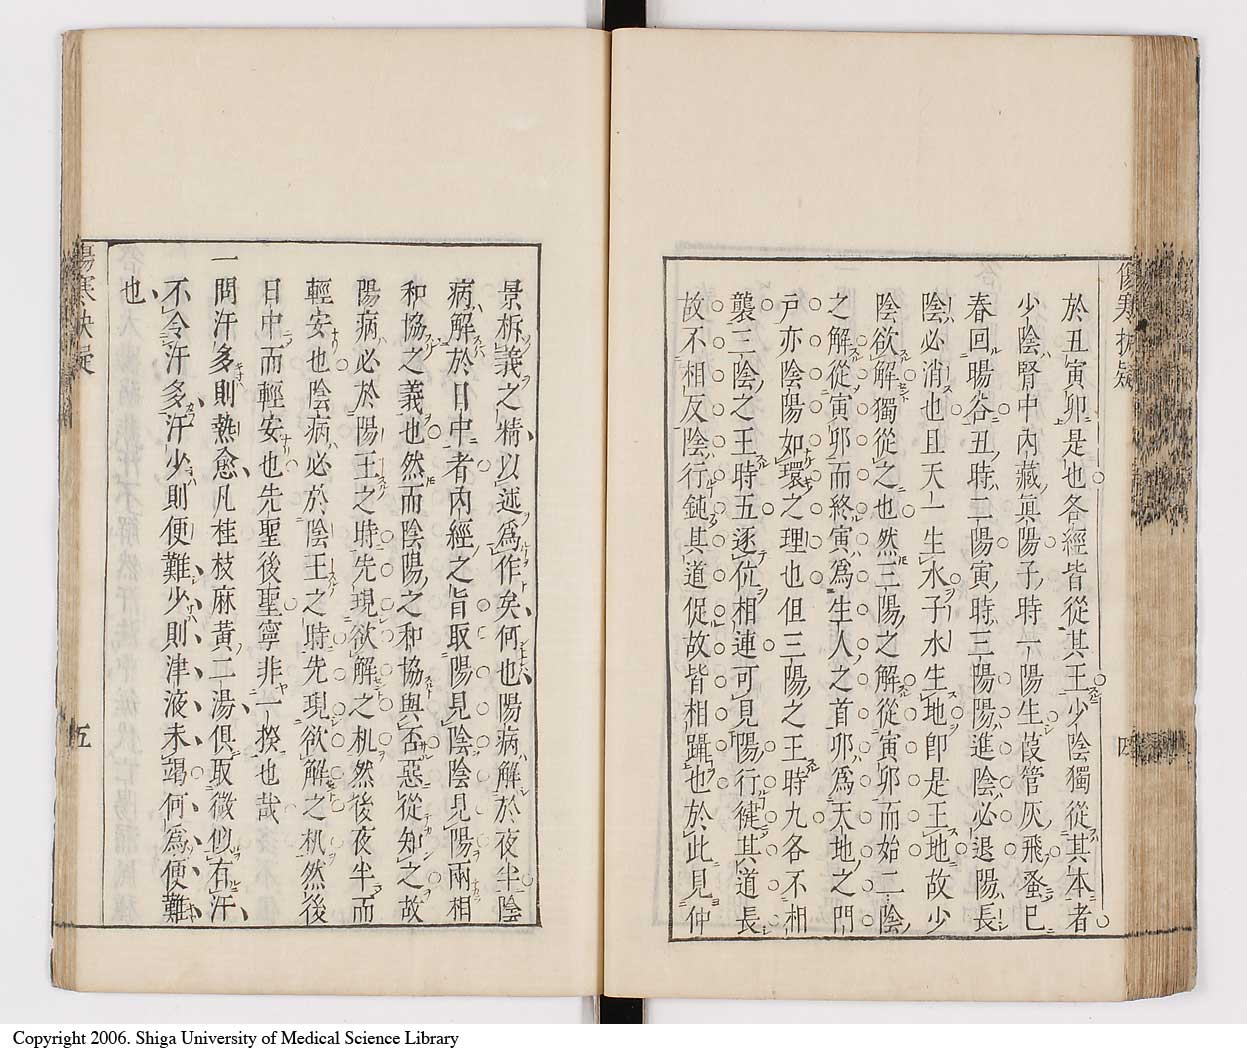 傷寒抉疑
四
於丑寅卯是也各經皆從其王少陰獨從其本者
少陰腎中內藏眞陽子時一陽生葭管灰飛蚤已
春回暘谷丑時二陽寅時三陽陽進陰必退陽長
陰必消也且天一生水子水生地卽是王地故少
陰欲解獨從之也然三陽之解從寅卯而始二陰
之解從寅卯而終寅爲生人之首卯爲天地之門
戸亦陰陽如環之理也但三陽之王時九各不相
襲三陰之王時五逐位相連可見陽行健其道長
故不相反陰行鈍其道促故皆相躡也於此見仲
景析義之精以述爲作矣何也陽病解於夜半陰
病解於日中者內經之旨取陽見陰陰見陽兩相
和協之義也然而陰陽之和協與否惡從知之故
陽病必於陽王之時先現欲解之机然後夜半而
輕安也陰病必於陰王之時先現欲解之机然後
日中而輕安也先聖後聖寧非一揆也哉
一問汗多則熱愈凡桂枝麻黃二湯俱取微似有汗
不令汗多汗少則便難少則津液未竭何爲便難
也
傷寒抉疑
五
Copyright 2006. Shiga University of Medical Science Library